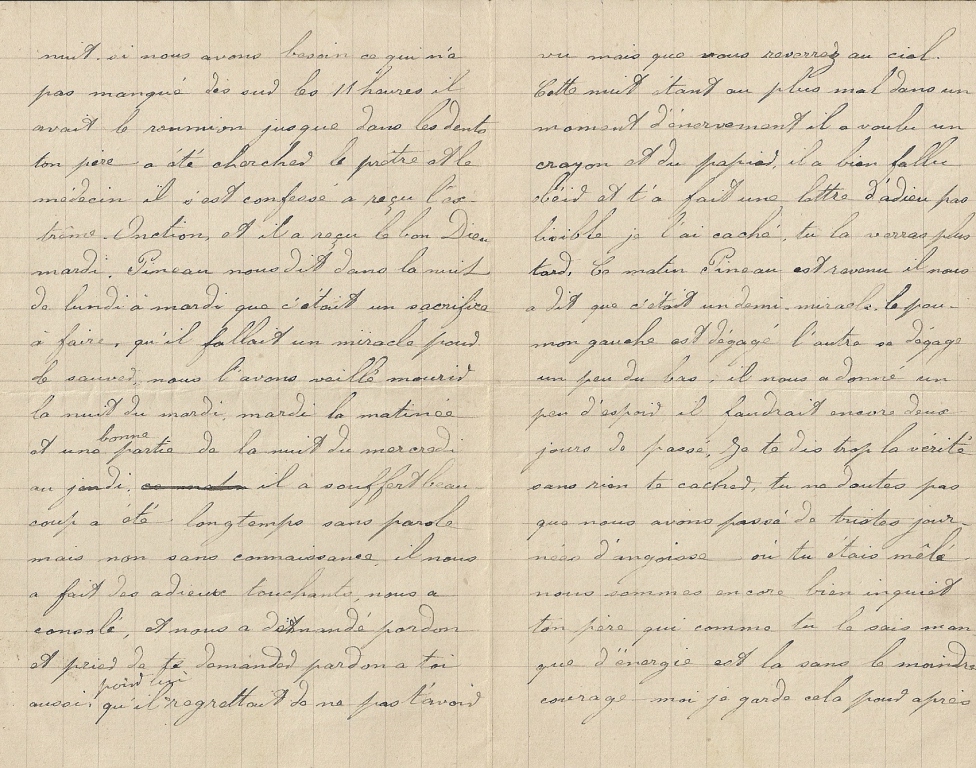 nuit. si nous avons besoin ce qui n'a
pas manqué dès sud les 11 heures il
avait le roumion jusque dans les dents
ton père a été cherched le prêtre et le
médecin il s'est confessé a reçu l'ex-
trême-Onction, et il a reçu le bon Dieu
mardi, Pineau nous dit dans la nuit
de lundi à mardi que c'était un sacrifice
à faire, qu'il fallait un miracle pour
le sauver, nous l'avons veillé mourir
la nuit du mardi, mardi la matinée
et une bonne partie de la nuit du mercredi
au jeudi. il a souffert beau-
coup a été longtemps sans parole
mais non sans connaissance, il nous
a fait des adieux touchants, nous a
consolé, et nous a demandé pardon
et prier de te demander pardon a toi
aussi, qu'il regrettait de ne pas t'avoir
vu mais que vous reverrez au ciel.
Cette nuit étant au plus mal dans un
moment d'énervement il a voulu un
crayon et du papier, il a bien fallu
céder et t'a fait une lettre d'adieu pas
lisible je l'ai caché, tu la verras plus
tard. Ce matin Pineau est revenu il nous
a dit que c'était un demi-miracle. le pou-
mon gauche est dégagé l'autre se dégage
un peu du bas, il nous a donné un
peu d'espoir il faudrait encore deux
jours de passé. Je te dis trop la vérité
sans rien te cacher, tu ne doutes pas
que nous avons passé de tristes jour-
nées d'angoisse où tu étais mêlé
nous sommes encore bien inquiet
ton père qui comme tu le sais man
que d'énergie est la sans le moindre
courage moi je garde cela pour après